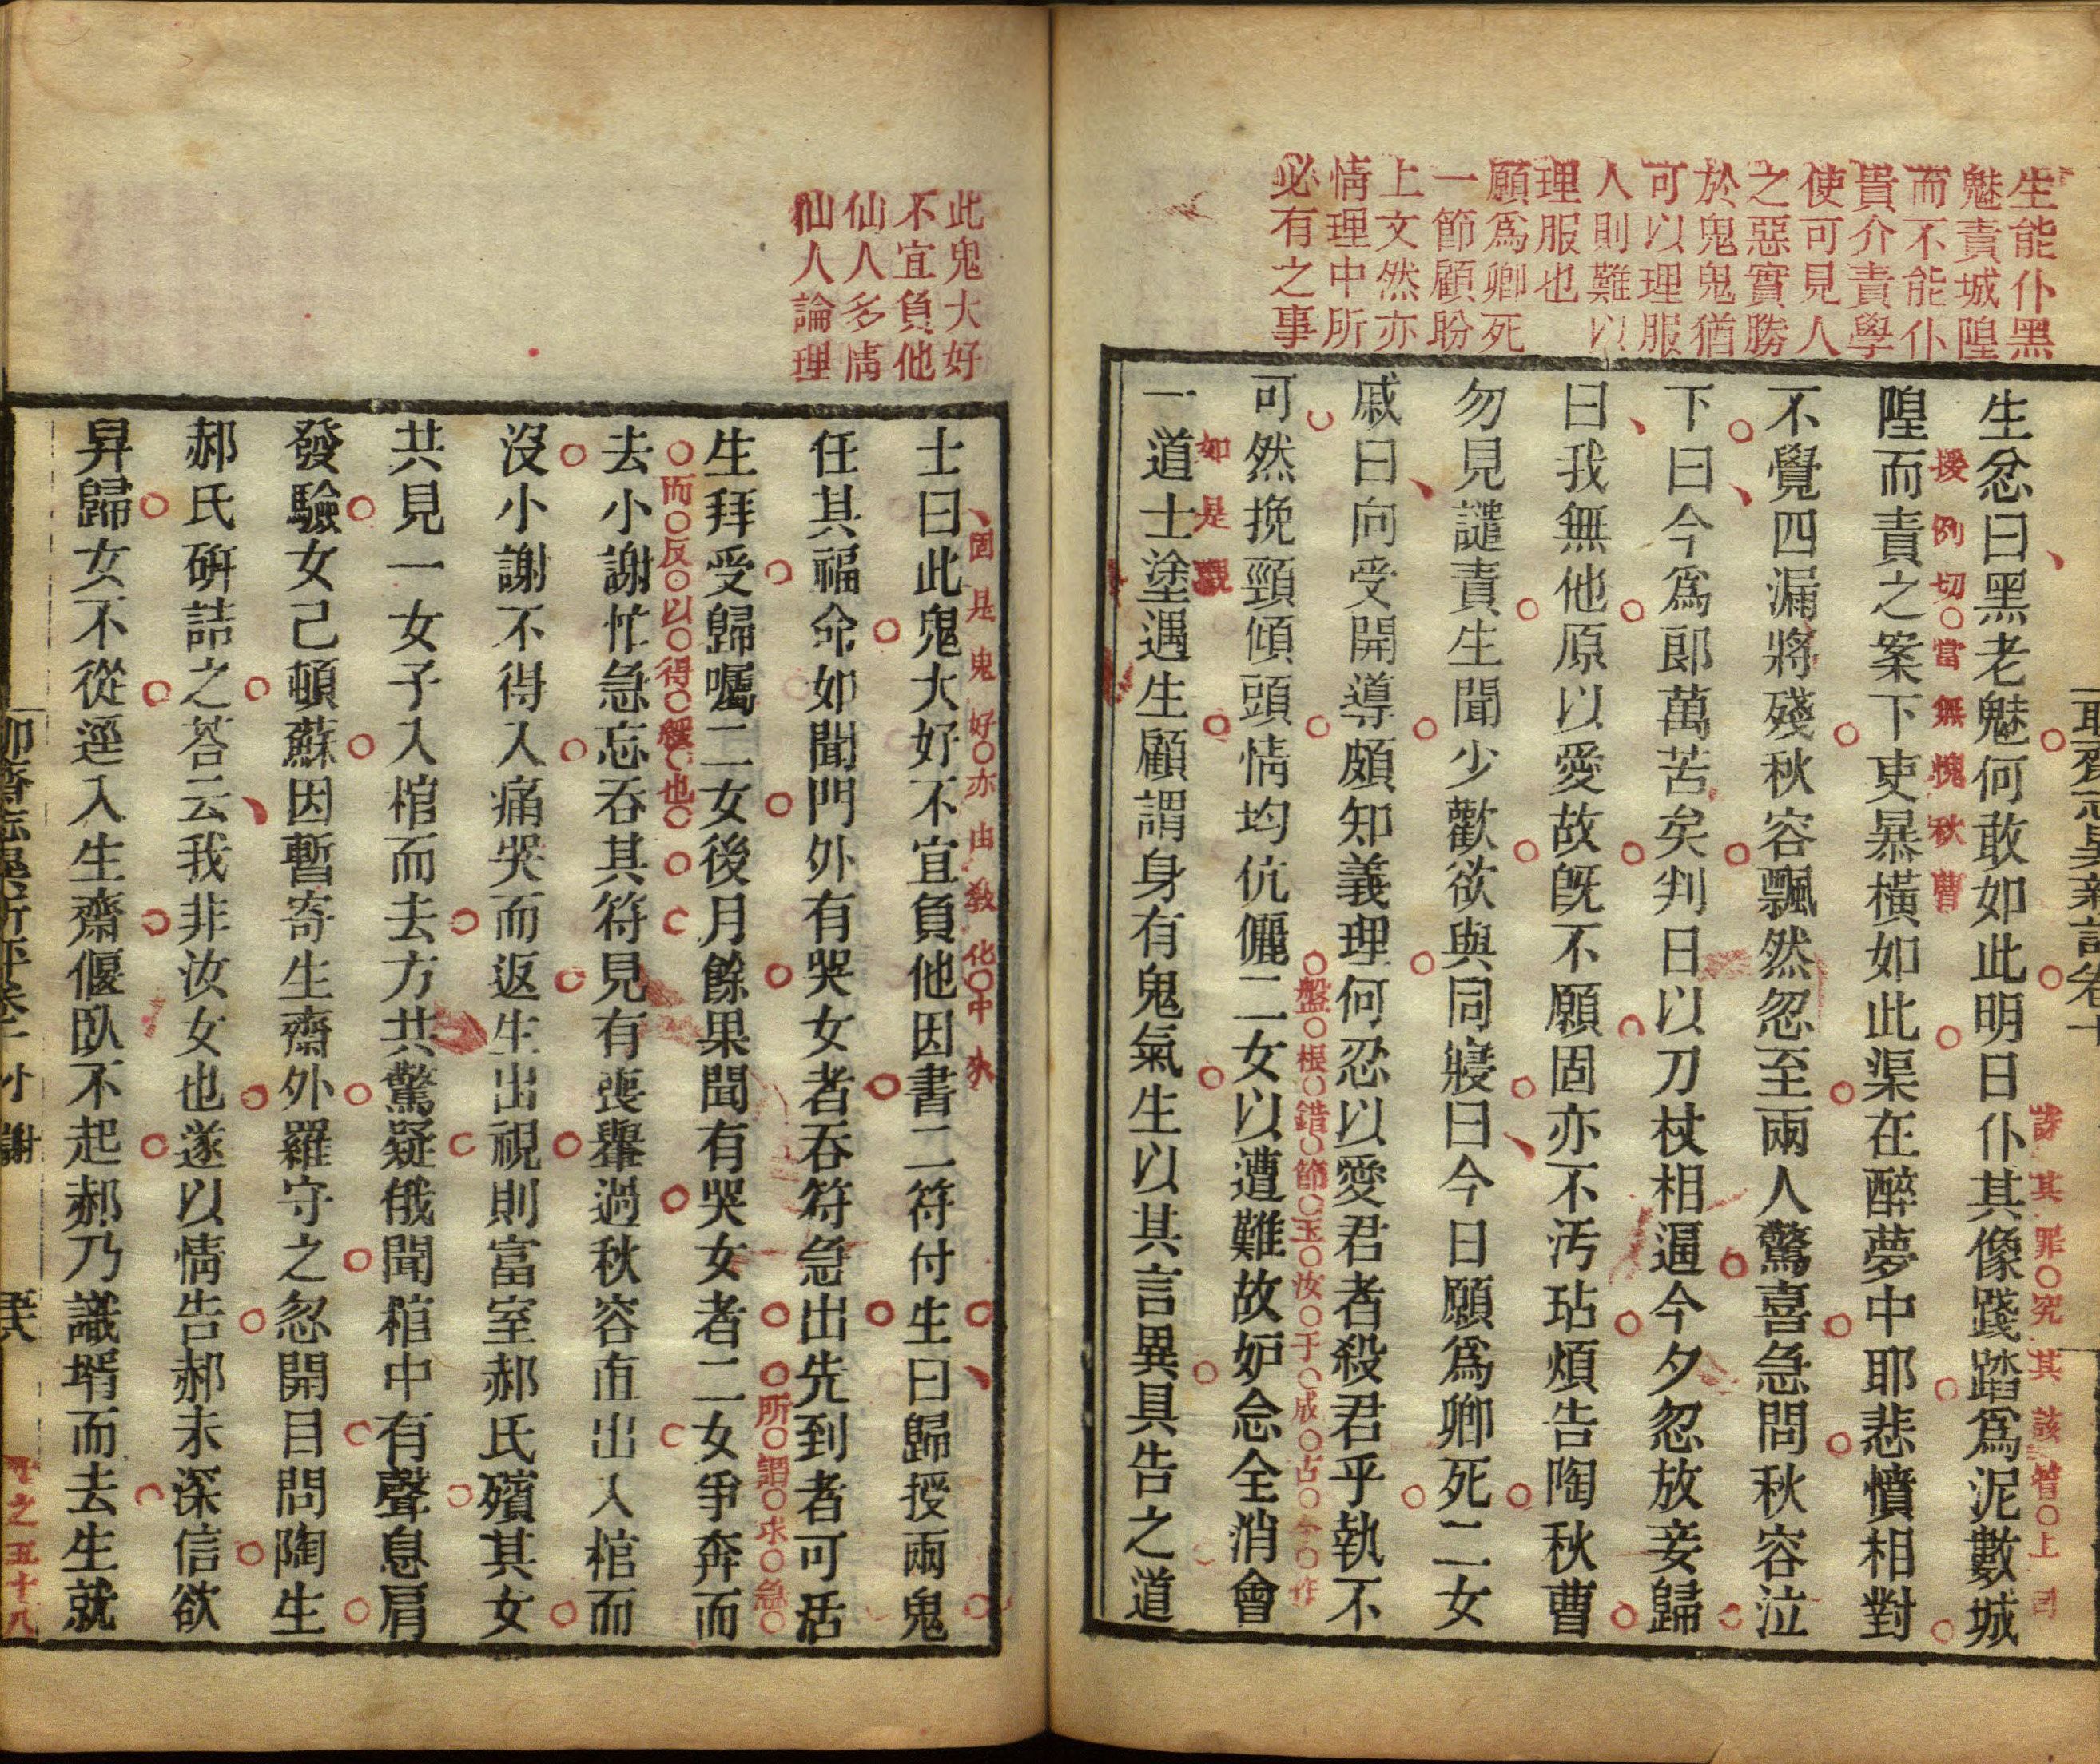 生能仆黑
魅責城隍
而不能仆
貴介責學
使可見人
之惡實勝
於鬼鬼猶
可以理服
人則難以
理服也
願爲卿死
一節顧盼
上文然亦
情理中所
必有之事
生忿曰黑老魅何敢如此明日仆其像踐踏爲泥數城
訴其罪究其該管上司
隍而責之案下吏暴橫如此渠在醉夢中耶悲憤相對
援例切當無愧秋曹
不覺四漏將殘秋容飄然忽至兩人驚喜急問秋容泣
下曰今爲郎萬苦矣判日以刀杖相逼今夕忽放妾歸
曰我無他原以愛故既不願固亦不汚玷煩告陶秋曹
勿見譴責生聞少歡欲與同寢曰今日願爲卿死二女
戚曰向受開導頗知義理何忍以愛君者殺君乎執不
可然挽頸傾頭情均伉儷二女以遭難故妒念全消會
盤根錯節玉汝于成占今作
一道士塗遇生顧謂身有鬼氣生以其言異具告之道
如是觀
此鬼大好
不宜負他
仙人多情
仙人論理
士曰此鬼大好不宜負他因書二符付生曰歸授兩鬼
固是鬼好亦由教化中來
任其福命如聞門外有哭女者吞符急出先到者可活
生拜受歸囑二女後月餘果聞有哭女者二女爭奔而
所謂求急
而反以得緩也
去小謝忙急忘吞其符見有喪轝過秋容直出入棺而
沒小謝不得入痛哭而返生出視則富室郝氏殯其女
共見一女子入棺而去方共驚疑俄聞棺中有聲息肩
發驗女已頓蘇因暫寄生齋外羅守之忽開目問陶生
郝氏研詰之答云我非汝女也遂以情告郝未深信欲
舁歸女不從逕入生齋偃臥不起郝乃識壻而去生就
之五十八